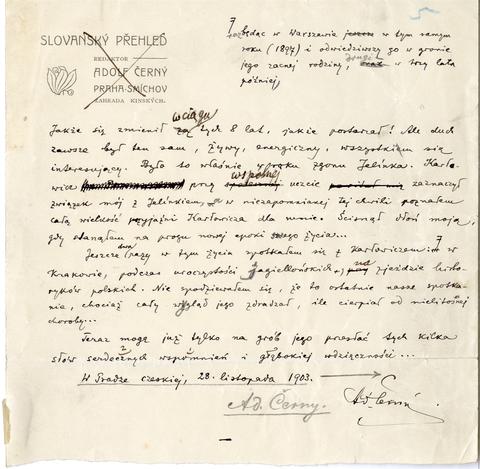 SLOVANSKÝ PŘEHLED
REDAKTOR
ADOLF ČERNÝ
PRAHA-SMÍCHOV
ZAHRADA KINSKÝCH.
będąc w Warszawie jeszcze w tym samym
roku (1897) i odwiedziwszy go w gronie
jego zacnej rodziny, drugi w trzy lata
później,
w ciągu
Jakże się zmienił za tych 8 lat, jakże postarzał! Ale duch
zawsze był ten sam, żywy, energiczny, wszystkiem się
interesujący. Było to właśnie w roku zgonu Jelínka. Karło-
wicz przy wspólnej uczcie zaznaczył
związek mój z Jelínkiem, w niezapomnianej tej chwili poznałem
całą wielkość przyjaźni Karłowicza dla mnie. Ścisnął dłoń moją,
gdy stanąłem na progu nowej epoki swego życia...
Jeszcze dwa razy w tym życiu spotkałem się z Karłowiczem w
Krakowie, podczas uroczystości Jagiellońskich, na zjeździe histo-
ryków polskich. Nie spodziewałem się, że to ostatnie nasze spotka-
nie, chociaż cały wygląd jego zdradzał, ile cierpiał od nielitosnej
choroby...
Teraz mogę już tylko na grób jego przesłać tych kilka
słów serdecznych wspomnień i głębokiej wdzięczności...
W Pradze czeskiej, 28. listopada 1903.
Ad. Černý.
Ad. Černý